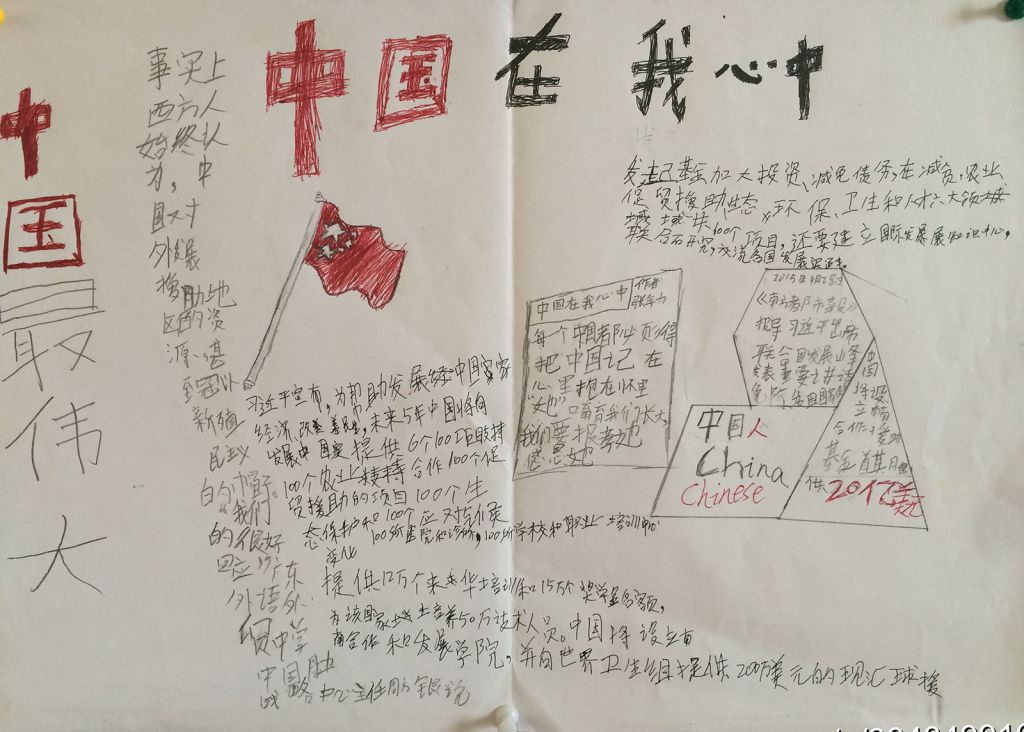 中国在我心中
中
国
最
伟
大
事实上
西方人
始终认
为，中
国对
外发展
援助地
区的资
源，甚
至冠以
新殖
民主义
白的帽子。
"我们
的很好
回应"广东
外语外
贸中学
中国
战略中心主任周方银说
发起基金加大投资、减免债务，在减贫，农业
促贸援助生态，环保、卫生和人才六大领域
共100个项目，还要建立国际发展知识中心，
联合研究，交流各国发展
中国在我心中
作者
每一个中国者都必须得
把"中国记在
心里抱在怀里
"她"哺育我们长大
我们要报答她
感恩她
2015年9月28日
《南方都市报》
报导习近平出席
联合国发展峰会
发表重要讲话
中国
将设
立
合作援助
基金首期
供20亿美元
中国人
China
Chinese
习近平宣布，为帮助发展经中国家
经济，改善民生，未来5年中国将向
发展中国家提供6个100项目支持
100个农业
合作100个促
贸援助的项目100个生
态保护和100个应对气候
变化
100所医院和诊所，100所学校和职业培训中心
提供12万个来华培训和15万个奖学金名额，
为该国家培养50万技术人员。中国将设立南
南合作和发展学院，并向世界卫生组提供200万美元的现汇